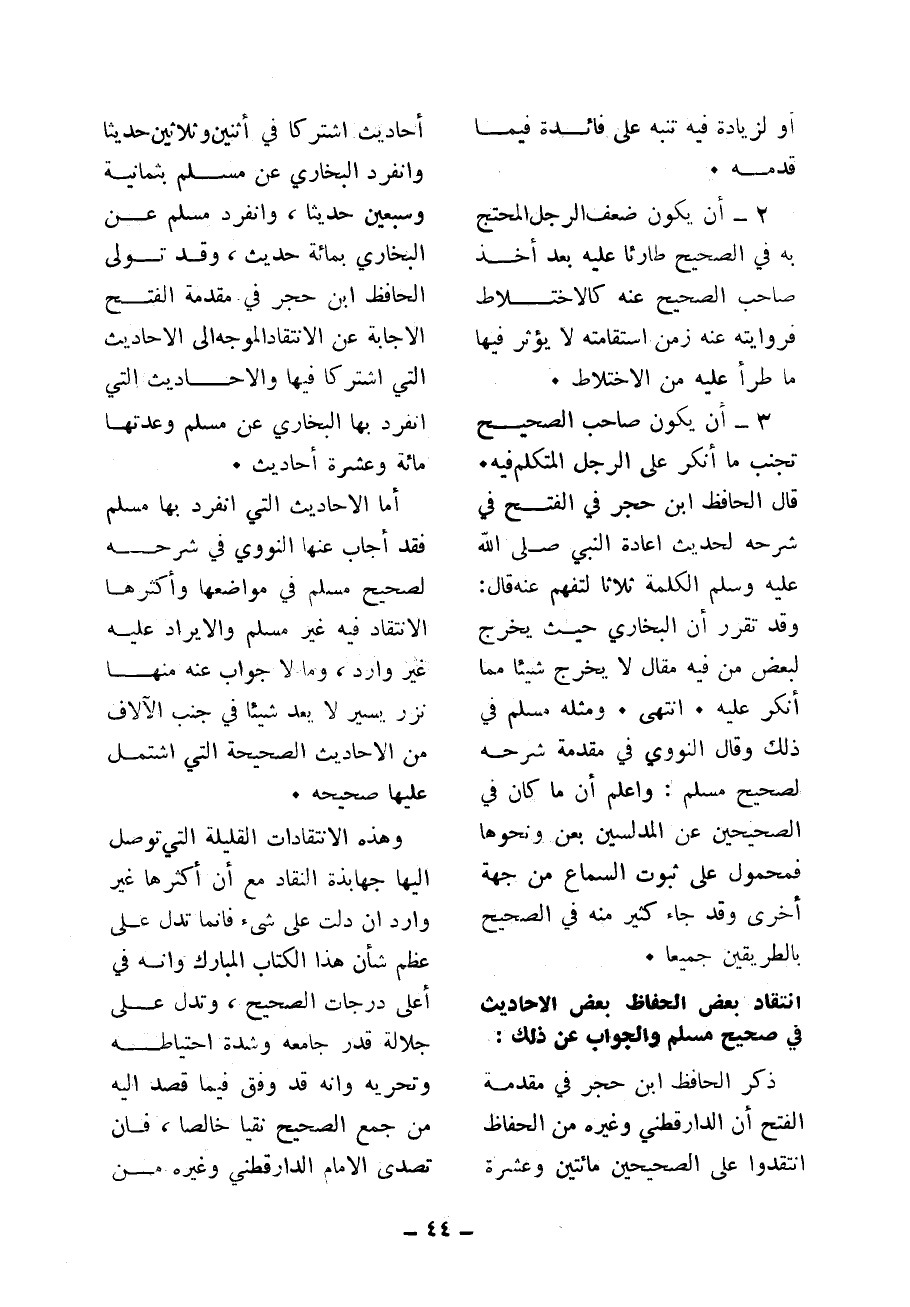 أو لزيادة فيه تنبه على فائـــدة فيمـــا
قدمـــه ٠
٢ ـ أن يكون ضعف الرجل المحتج
به في الصحيح طارئا عليه بعد أخـــذ
صاحب الصحيح عنه كالاختـــلاط
فروايته عنه زمن استقامته لا يؤثر فيها
ما طرأ عليه من الاختلاط ٠
٣ ـ أن يكون صاحب الصحيـــح
تجنب ما أنكر على الرجل المتكلم فيه٠
قال الحافظ ابن حجر في الفتـــح في
شرحه لحديث اعادة النبي صـلى الله
عليه وسلم الكلمة ثلاثا لتفهم عنه قال:
وقد تقرر أن البخاري حيـث يخرج
لبعض من فيه مقال لا يخرج شيئا مما
أنكر عليه ٠ انتهى ٠ ومثله مسلم في
ذلك وقال النووي في مقدمة شرحـــه
لصحيح مسلم : واعلم أن ما كان في
الصحيحين عن المدلسين بعن ونحوها
فمحمول على ثبوت السماع من جهة
أخرى وقد جاء كثير منه في الصحيح
بالطريقين جميعا ٠
انتقاد بعض الحفاظ بعض الاحاديث
في صحيح مسلم والجواب عن ذلك :
ذكر الحافظ ابن حجر في مقدمـة
الفتح أن الدارقطني وغيره من الحفاظ
انتقدوا على الصحيحين مائتين وعشرة
أحاديث اشتركا في أثنين وثلاثين حديثا
وانفرد البخاري عن مســـلم بثمانيـة
وسبعين حديثا ، وانفرد مسلم عـــن
البخاري بمائة حديث ، وقـد تـــولى
الحافظ ابن حجر في مقدمة الفتـــح
الاجابة عن الانتقاد الموجه الى الاحاديث
التي اشتركا فيها والاحـــاديث التي
انفرد بها البخاري عن مسلم وعدتهـا
مائة وعشرة أحاديث ٠
أما الاحاديث التي انفرد بها مسلم
فقد أجاب عنها النووي في شرحـــه
لصحيح مسلم في مواضعها وأكثرهـا
الانتقاد فيه غير مسلم والايراد عليـه
غير وارد ، وما لا جواب عنه منهـــا
نزر يسير لا يعد شيئا في جنب الآلاف
من الاحاديث الصحيحة التي اشتمـل
عليها صحيحه ٠
وهذه الانتقادات القليلة التي توصل
اليها جهابذة النقاد مع أن أكثرها غير
وارد ان دلت على شيء فانما تدل عـلى
عظم شأن هذا الكتاب المبارك وانـه في
أعلى درجات الصحيح ، وتدل عـــلى
جلالة قدر جامعه وشدة احتياطـــه
وتحريه وانه قد وفق فيما قصد اليه
من جمع الصحيح نقيا خالصا ، فـان
تصدى الامام الدارقطني وغيره مـــن
ـ ٤٤ ـ